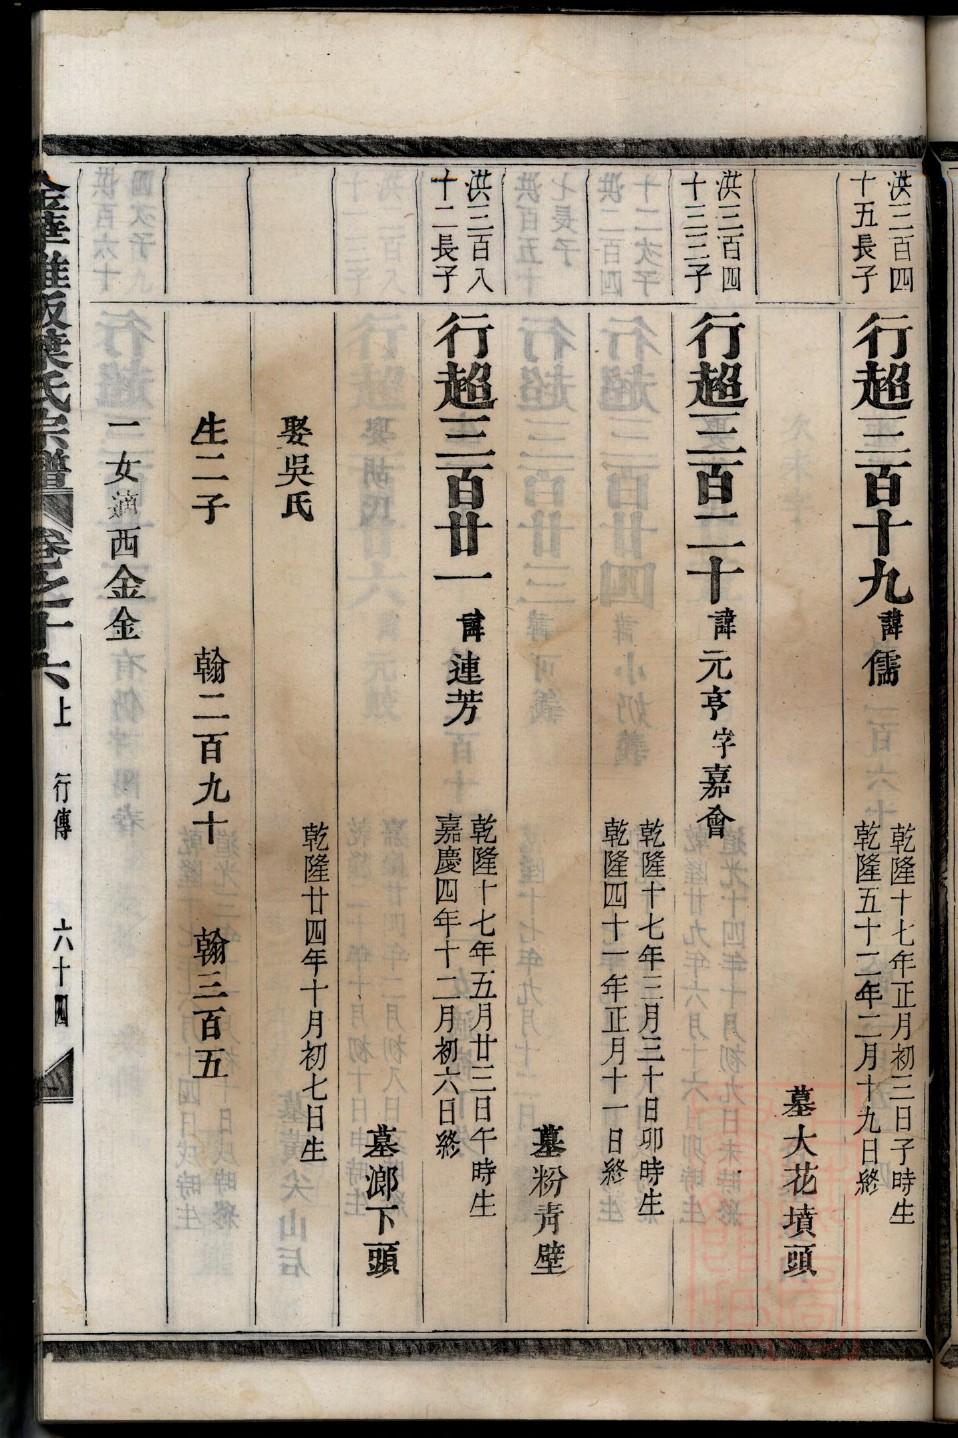 洪三百四
十五長子
行超三百十九
諱儒
乾隆十七年正月初三日子時生
乾隆五十二年二月十九日終
墓大花墳頭
洪三百四
十三三子
行超三百二十
諱元亨字嘉會
乾隆十七年三月三十日卯時生
乾隆四十一年正月十一日終
墓粉青壁
洪三百八
十二長子
行超三百廿一
諱連芳
乾隆十七年五月廿三日午時生
嘉慶四年十二月初六日終
墓瀂下頭
娶吳氏
乾隆廿四年十月初七日生
生二子
翰二百九十
翰三百五
一女適西金金
葉氏宗譜
卷之十六上
行傳
六十四